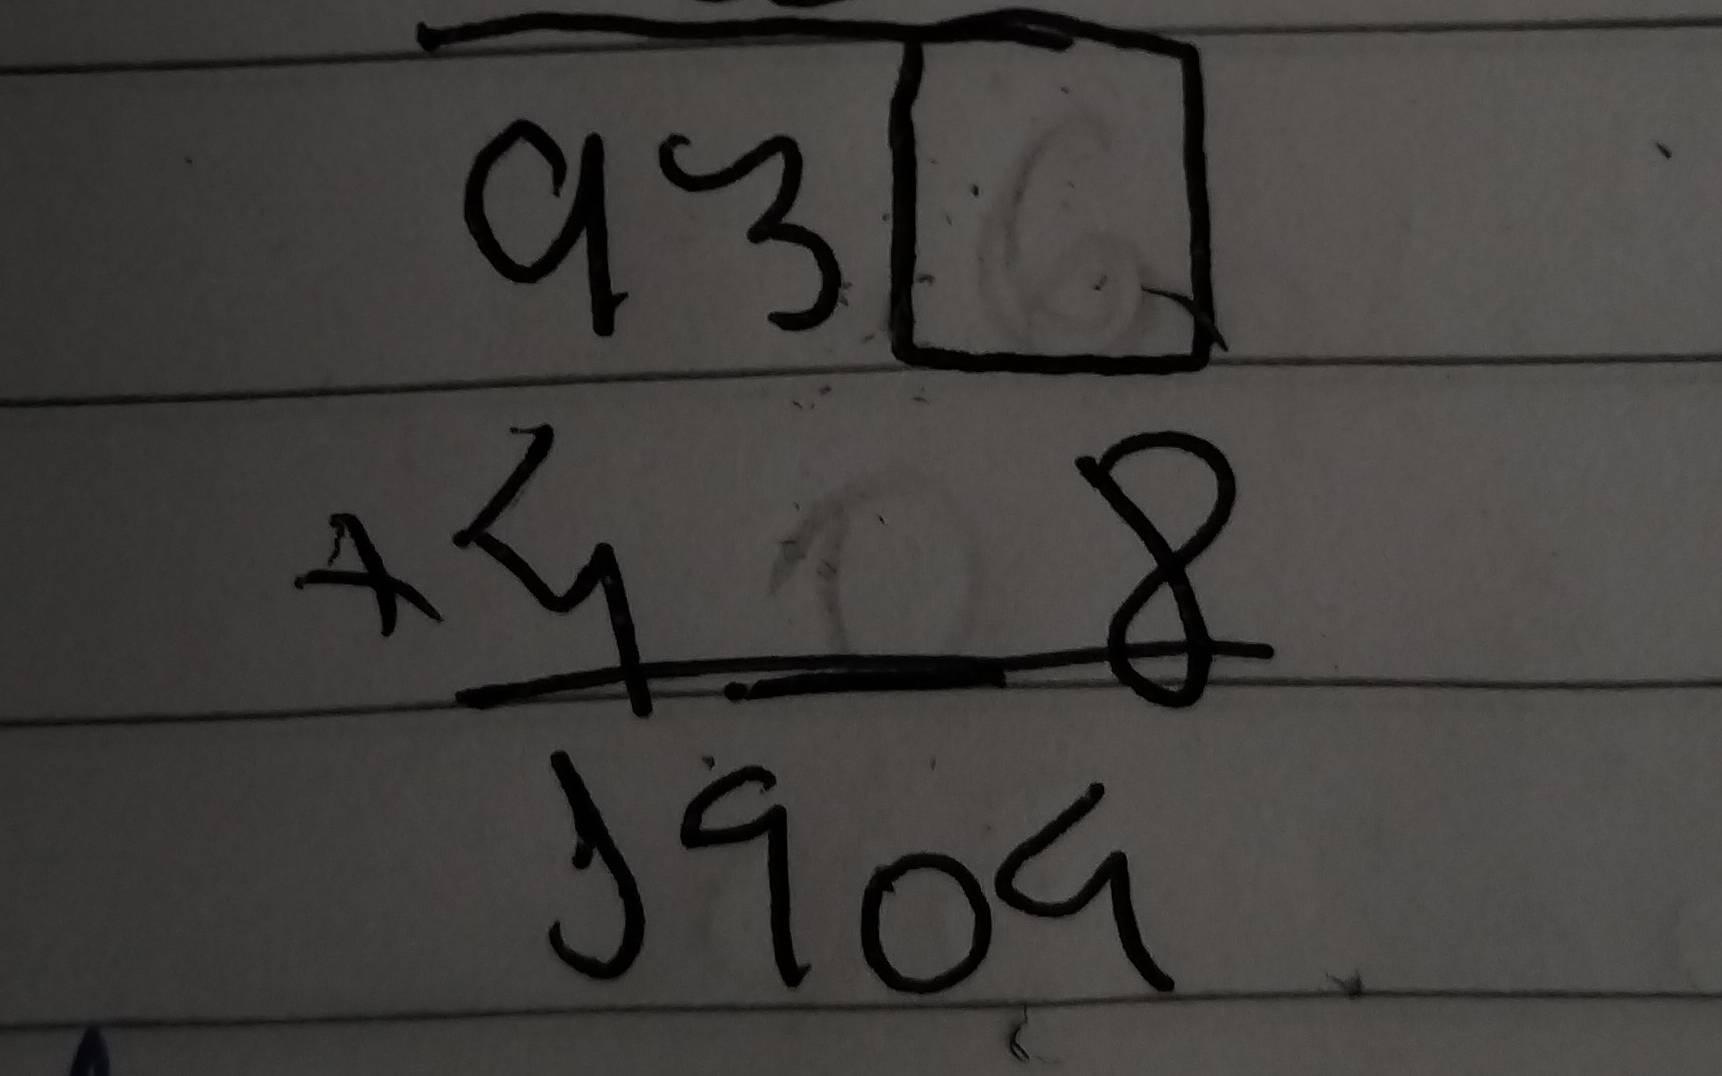 936
+408
1904